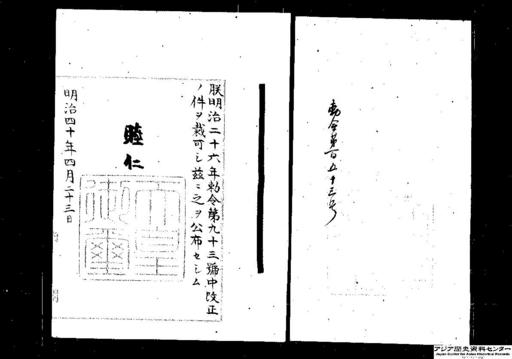 勅令第百五十三号
朕明治二十六年勅令第九十三號中改正
ノ件ヲ裁可シ茲ニ之ヲ公布セシム
睦仁
天皇御璽
明治四十年四月二十三日
アジア歴史資料センター
Japan Center for Asian Historical Records